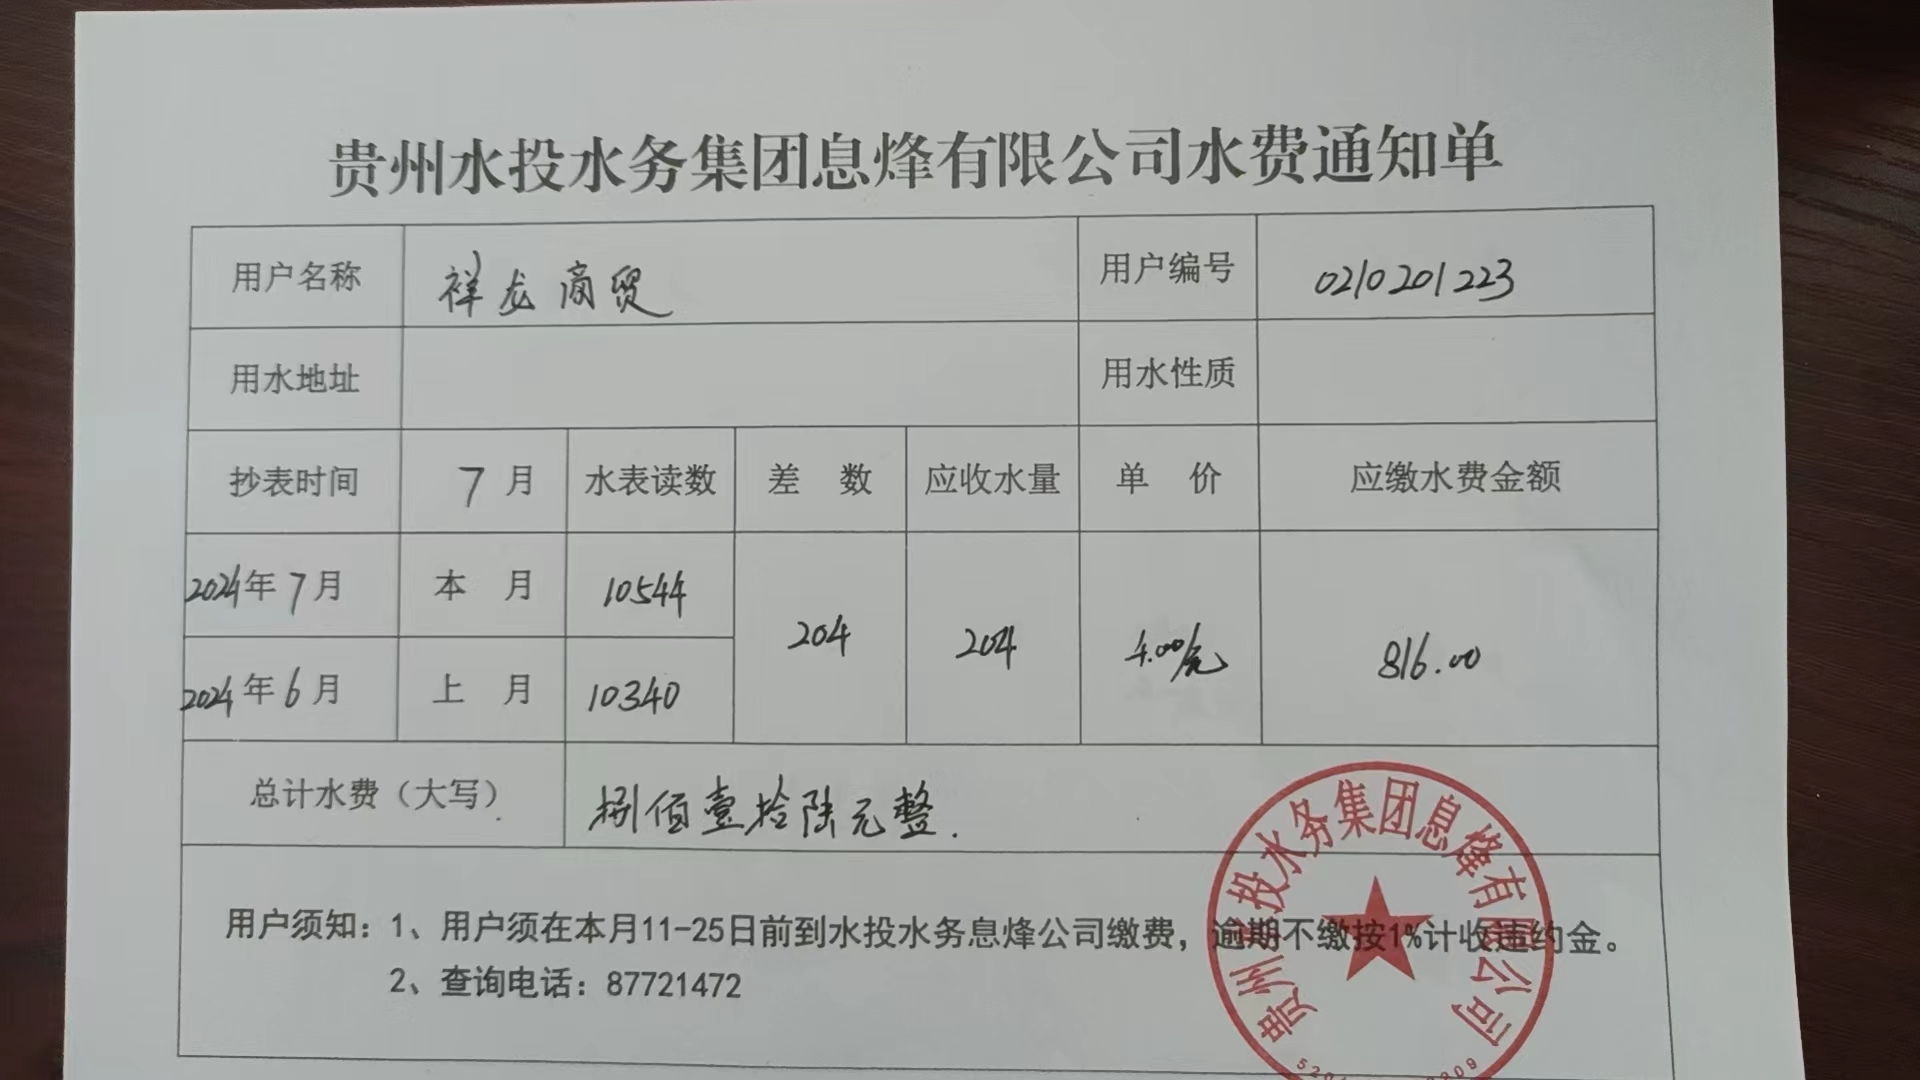 贵州水投水务集团息烽有限公司水费通知单
用户名称 祥龙商贸 用户编号 0210201223
用水地址 用水性质
抄表时间 7月 水表读数 差 数 应收水量 单 价 应缴水费金额
2024年7月 本 月 10544
204 204 4.00/元 816.00
2024年6月 上 月 10340
总计水费（大写） 捌佰壹拾陆元整.
用户须知：1、用户须在本月11-25日前到水投水务息烽公司缴费，逾期不缴按1%计收违约金。
2、查询电话：87721472
贵州水投水务集团息烽有限公司